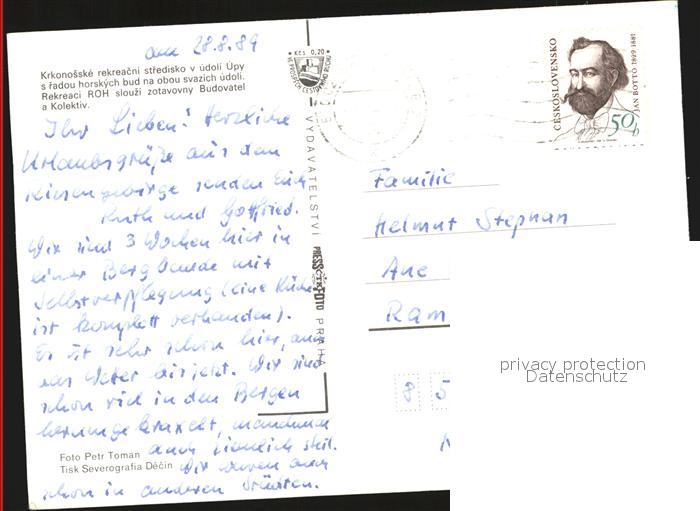 am 28.8.89
Krkonošské rekreační středisko v údolí Úpy
s řadou horských bud na obou svazích údolí.
Rekreaci ROH slouží zotavovny Budovatel
a Kolektiv.
Ihr Lieben! Herzliche
Urlaubsgrüße aus dem
Riesengebirge senden Euch
Ruth und Gottfried.
Wir sind 3 Wochen hier in
einer Bergbaude mit
Selbstverpflegung (eine Küche
ist komplett vorhanden).
Es ist sehr schön hier, auch
das Wetter bis jetzt. Wir sind
schon viel in den Bergen
herumgekraxelt, manchmal
auch ziemlich steil.
Wir waren auch
schon in anderen Städten.
Foto Petr Toman
Tisk Severografia Děčín
Kčs 0,20
VYDAVATELSTVÍ PRESSFOTO PRAHA
ČESKOSLOVENSKO
JÁN BOTTO 1829 1881
50h
Familie
Helmut Stephan
Ane
Ram
8 5
privacy protection
Datenschutz